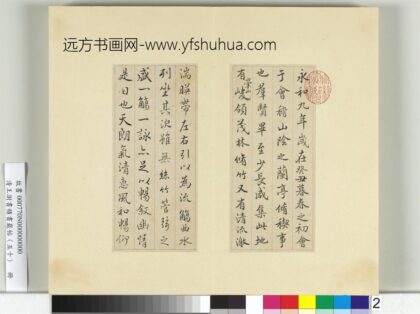 远方书画网-www.yfshuhua.com
永和九年歲在癸丑暮春之初會
于會稽山陰之蘭亭脩稧事
也羣賢畢至少長咸集此地
有崇山峻領茂林脩竹又有清流激
湍暎帶左右引以為流觴曲水
列坐其次雖無絲竹管弦之
盛一觴一詠亦足以暢敘幽情
是日也天朗氣清惠風和暢仰
故書
清王澍書積書巖帖（五十） 冊
2